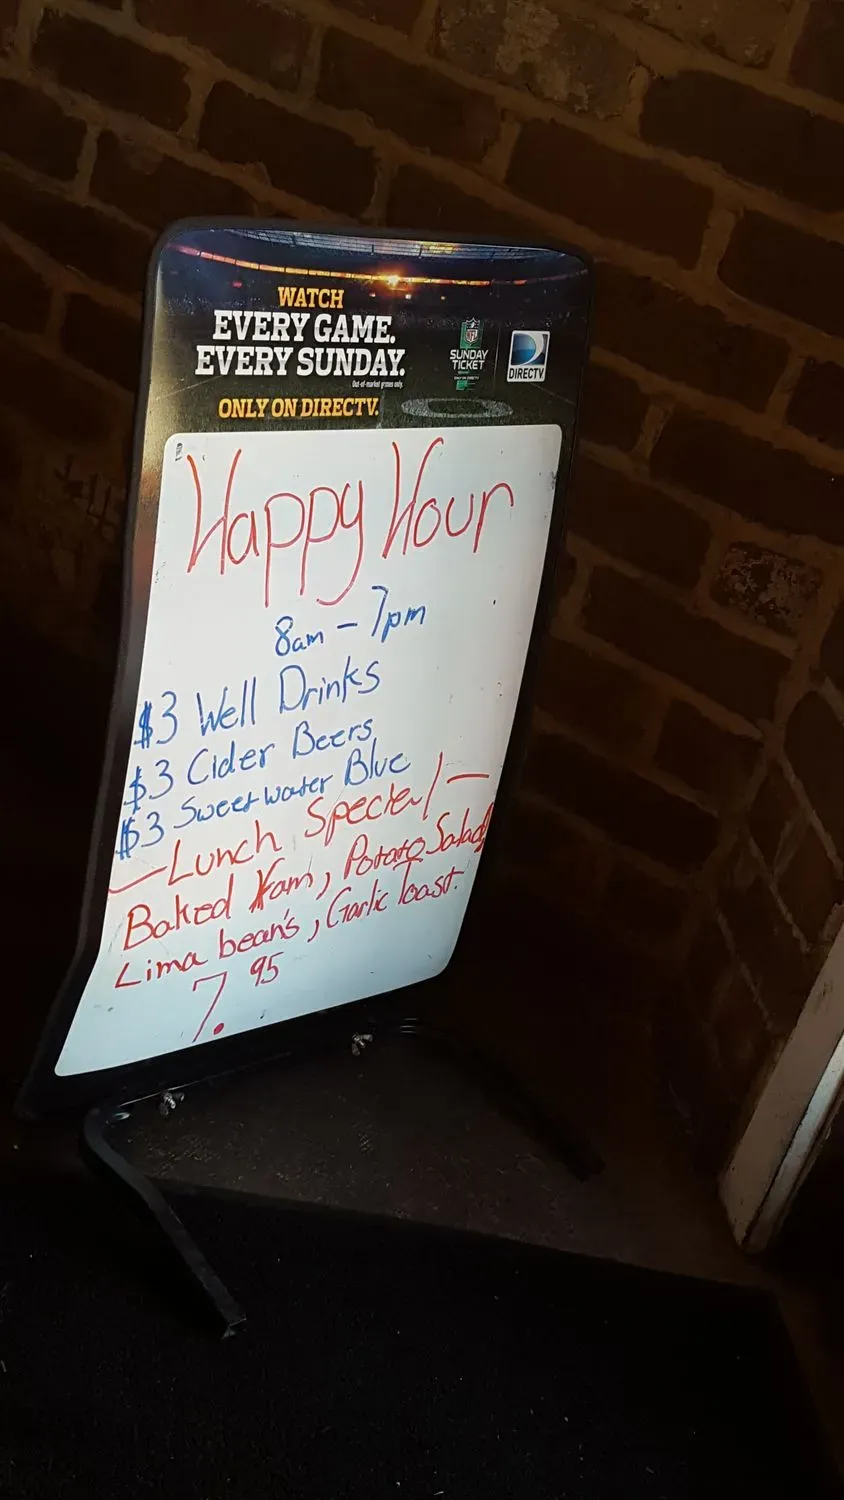 WATCH
EVERY GAME.
EVERY SUNDAY.
Out-of-market games only.
ONLY ON DIRECTV.
NFL
SUNDAY
TICKET
DIRECTV
Happy Hour
8am - 7pm
$3 Well Drinks
$3 Cider Beers
$3 Sweetwater Blue
- Lunch Special -
Baked Ham, Potato Salad,
Lima bean's, Garlic Toast.
7.95